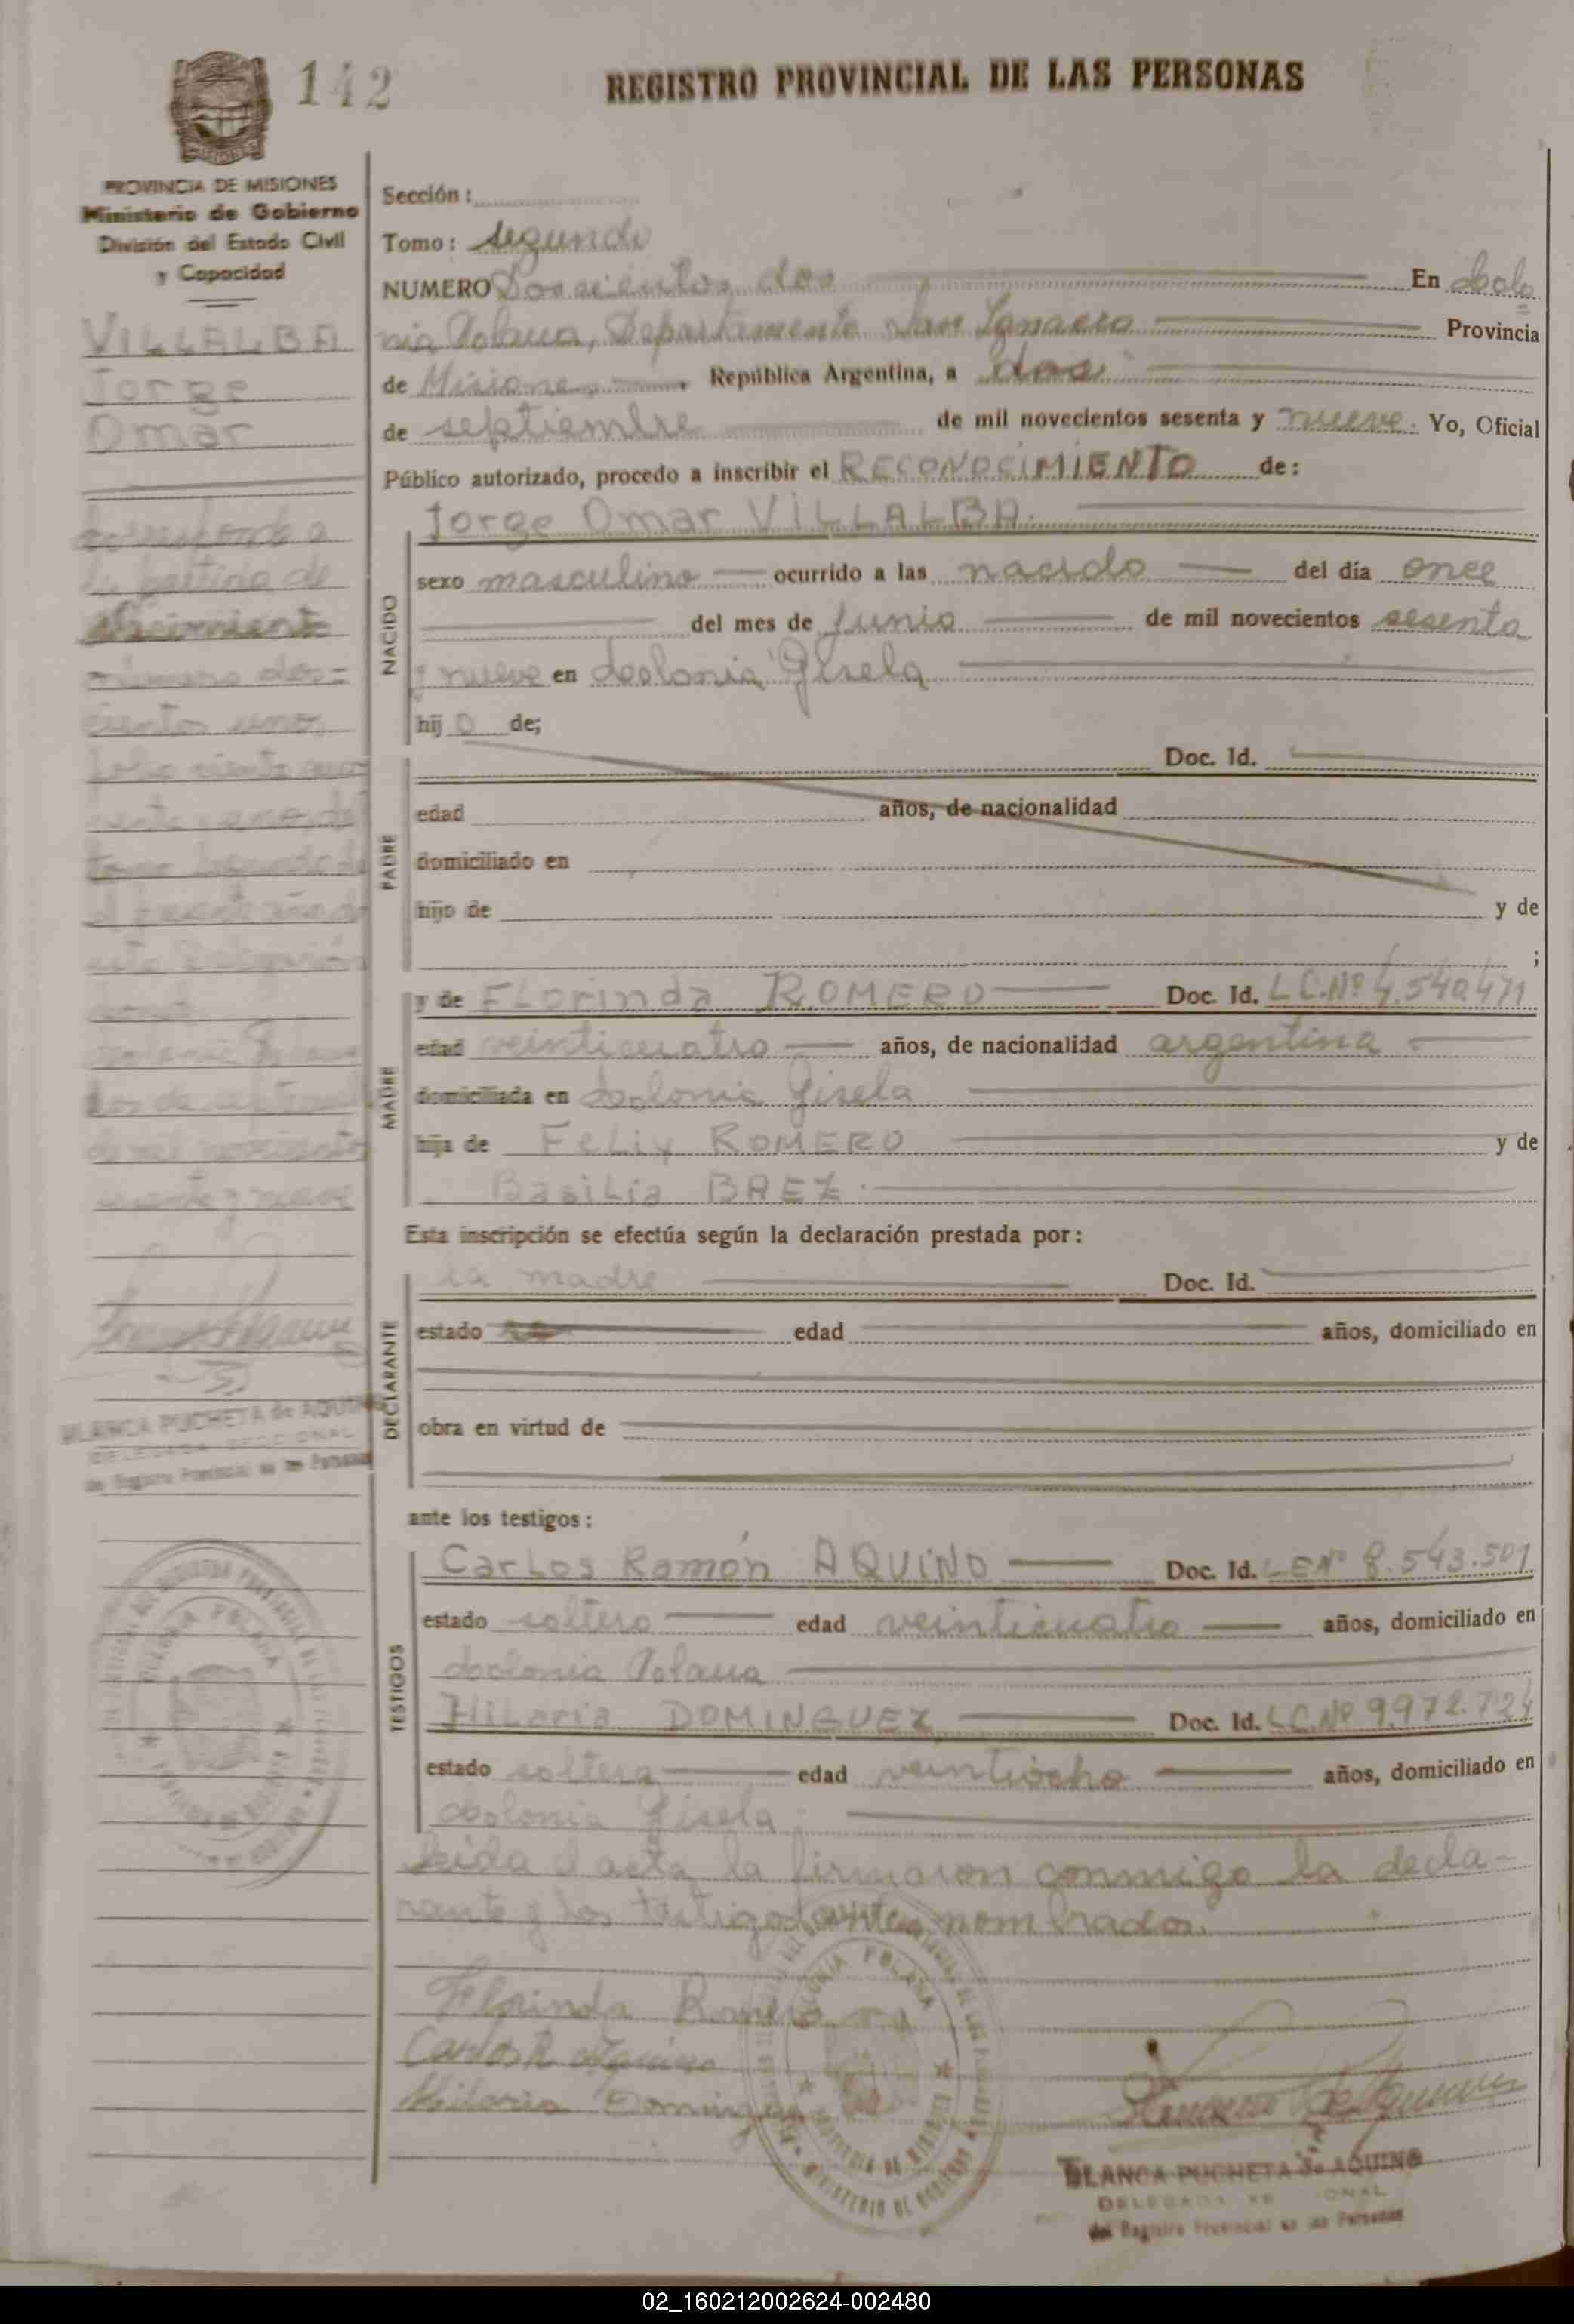 142
REGISTRO PROVINCIAL DE LAS PERSONAS
PROVINCIA DE MISIONES
Ministerio de Gobierno
División del Estado Civil
y Capacidad
VILLALBA
Jorge
Omar
corresponde a
la partida de
nacimiento
número dos=
cientos uno,
folio ciento cua
renta
tomo segundo de
el presente año
esta
dos de septiembre
de mil novecientos
sesenta y nueve
BLANCA PUCHETA de AQUINO
DELEGADA SECCIONAL
del Registro Provincial de las Personas
Sección:
Tomo: segundo
NUMERO Doscientos dos En Colo
nia Polana, Departamento San Ignacio Provincia
de Misiones República Argentina, a dos
de septiembre de mil novecientos sesenta y nueve. Yo, Oficial
Público autorizado, procedo a inscribir el RECONOCIMIENTO de:
NACIDO
Jorge Omar VILLALBA.
sexo masculino ocurrido a las nacido del día once
del mes de Junio de mil novecientos sesenta
y nueve en Colonia Gisela
hij o de;
PADRE
Doc. Id.
edad años, de nacionalidad
domiciliado en
hijo de y de
;
MADRE
y de Florinda ROMERO Doc. Id. L.C.Nº 4.540.471
edad veinticuatro años, de nacionalidad argentina
domiciliada en Colonia Gisela
hija de Felix ROMERO y de
Basilia BAEZ.
Esta inscripción se efectúa según la declaración prestada por:
DECLARANTE
la madre Doc. Id.
estado edad años, domiciliado en
obra en virtud de
ante los testigos:
TESTIGOS
Carlos Ramón AQUINO Doc. Id. L.E.Nº 8.543.501
estado soltero edad veinticuatro años, domiciliado en
Colonia Polana
Hilaria DOMINGUEZ Doc. Id. L.C.Nº 9.972.724
estado soltera edad veintiocho años, domiciliado en
Colonia Gisela.
Leida el acta la firmaron conmigo la decla-
rante y los testigos antes nombrados.
Florinda Romero
Carlos R Aquino
Hilaria Dominguez
COLONIA POLANA
PROVINCIA DE MISIONES
MINISTERIO DE GOBIERNO
BLANCA PUCHETA de AQUINO
DELEGADA SECCIONAL
del Registro Provincial de las Personas
02_160212002624-002480